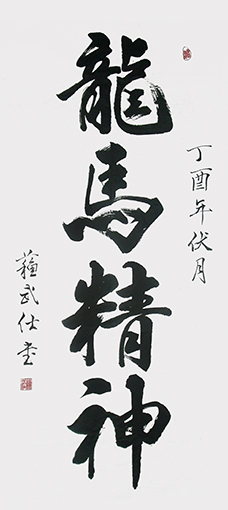 丁酉年伏月
龍馬精神
蘓武仕書